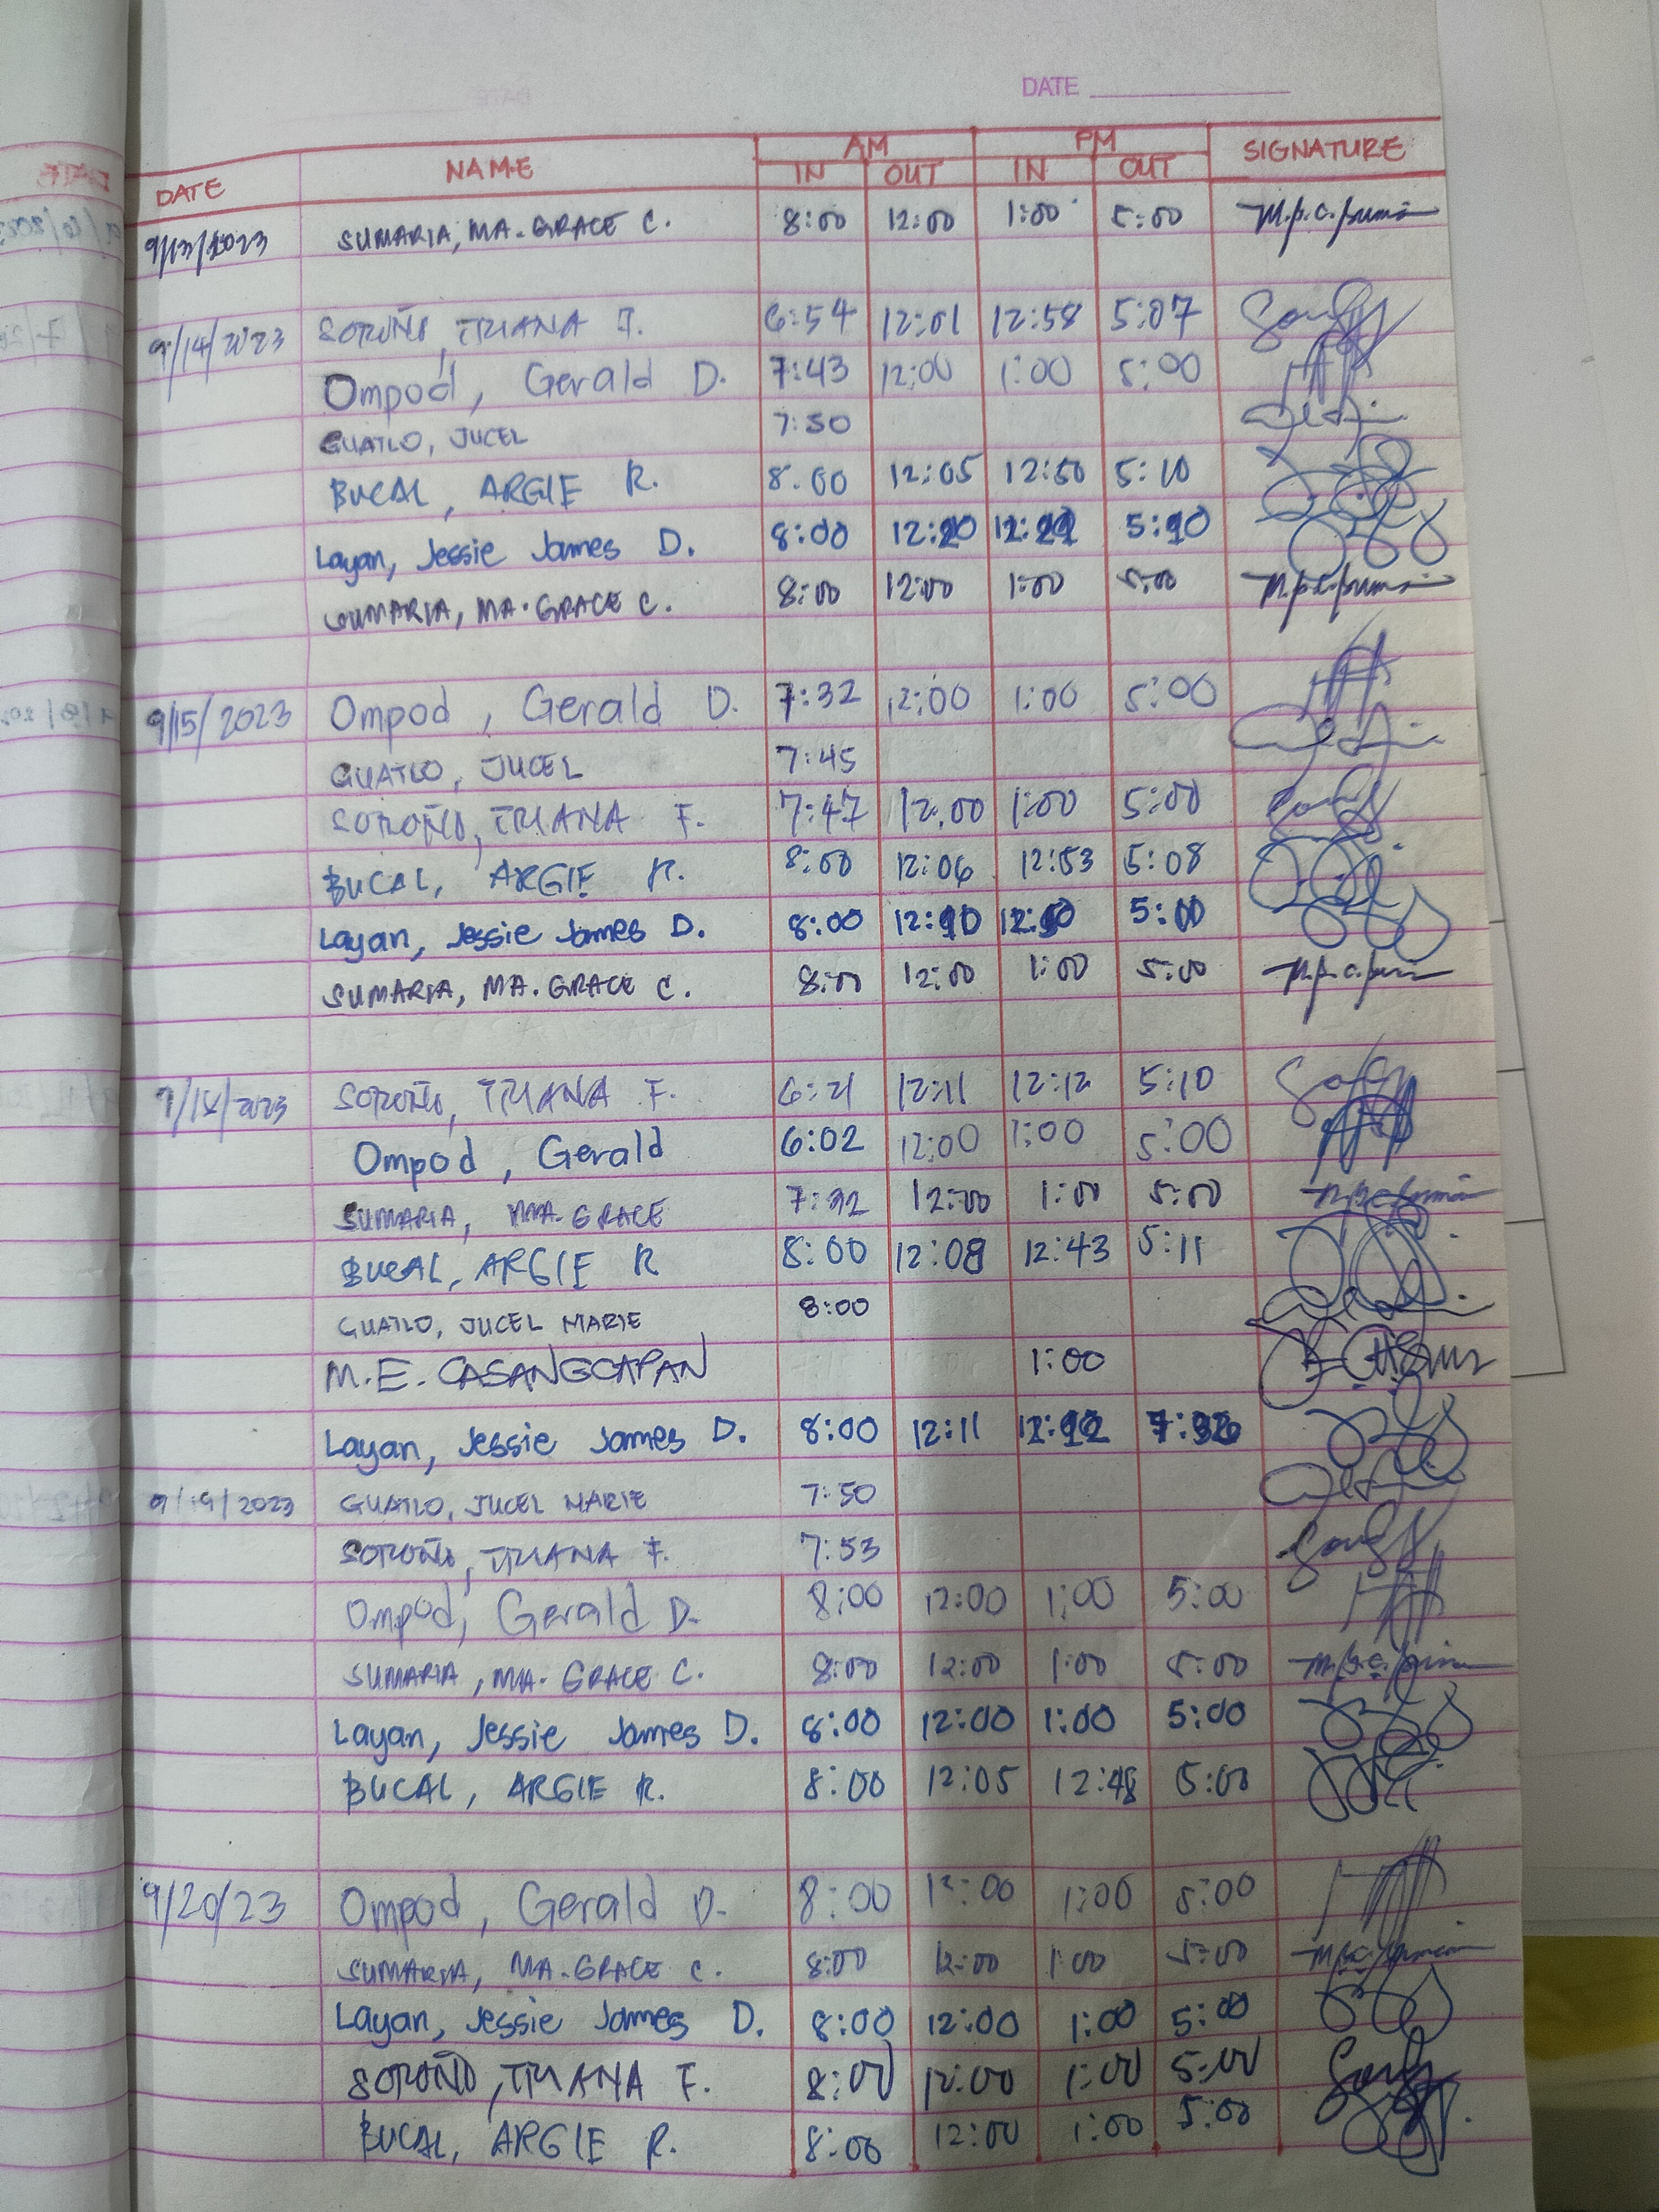 DATE
DATE NAME AM PM SIGNATURE
IN OUT IN OUT
9/13/2023 SUMARIA, MA. GRACE C. 8:00 12:00 1:00 5:00
9/14/2023 SOROÑO, TRIANA F. 6:54 12:01 12:58 5:07
Ompod, Gerald D. 7:43 12:00 1:00 5:00
GUATLO, JUCEL 7:50
BUCAL, ARGIE R. 8:00 12:05 12:50 5:10
Layan, Jessie James D. 8:00 12:20 5:10
SUMARIA, MA. GRACE C. 8:00 12:00 1:00 5:00
9/15/2023 Ompod, Gerald D. 7:32 12:00 1:00 5:00
GUATLO, JUCEL 7:45
SOROÑO, TRIANA F. 7:47 12:00 1:00 5:00
BUCAL, ARGIE R. 8:00 12:06 12:53 5:08
Layan, Jessie James D. 8:00 12:10 5:00
SUMARIA, MA. GRACE C. 8:00 12:00 1:00 5:00
9/18/2023 SOROÑO, TRIANA F. 6:21 12:11 12:12 5:10
Ompod, Gerald 6:02 12:00 1:00 5:00
SUMARIA, MA. GRACE 12:00 1:00 5:00
BUCAL, ARGIE R 8:00 12:08 12:43 5:11
GUATLO, JUCEL MARIE 8:00
M.E. CASANGCAPAN 1:00
Layan, Jessie James D. 8:00 12:11 12:12
9/19/2023 GUATLO, JUCEL MARIE 7:50
SOROÑO, TRIANA F. 7:53
Ompod, Gerald D. 8:00 12:00 1:00 5:00
SUMARIA, MA. GRACE C. 8:00 12:00 1:00 5:00
Layan, Jessie James D. 8:00 12:00 1:00 5:00
BUCAL, ARGIE R. 8:00 12:05 12:48 5:00
9/20/23 Ompod, Gerald D. 8:00 12:00 1:00 5:00
SUMARIA, MA. GRACE C. 8:00 12:00 1:00 5:00
Layan, Jessie James D. 8:00 12:00 1:00 5:00
SOROÑO, TRIANA F. 8:00 12:00 1:00 5:00
BUCAL, ARGIE R. 8:00 12:00 1:00 5:00